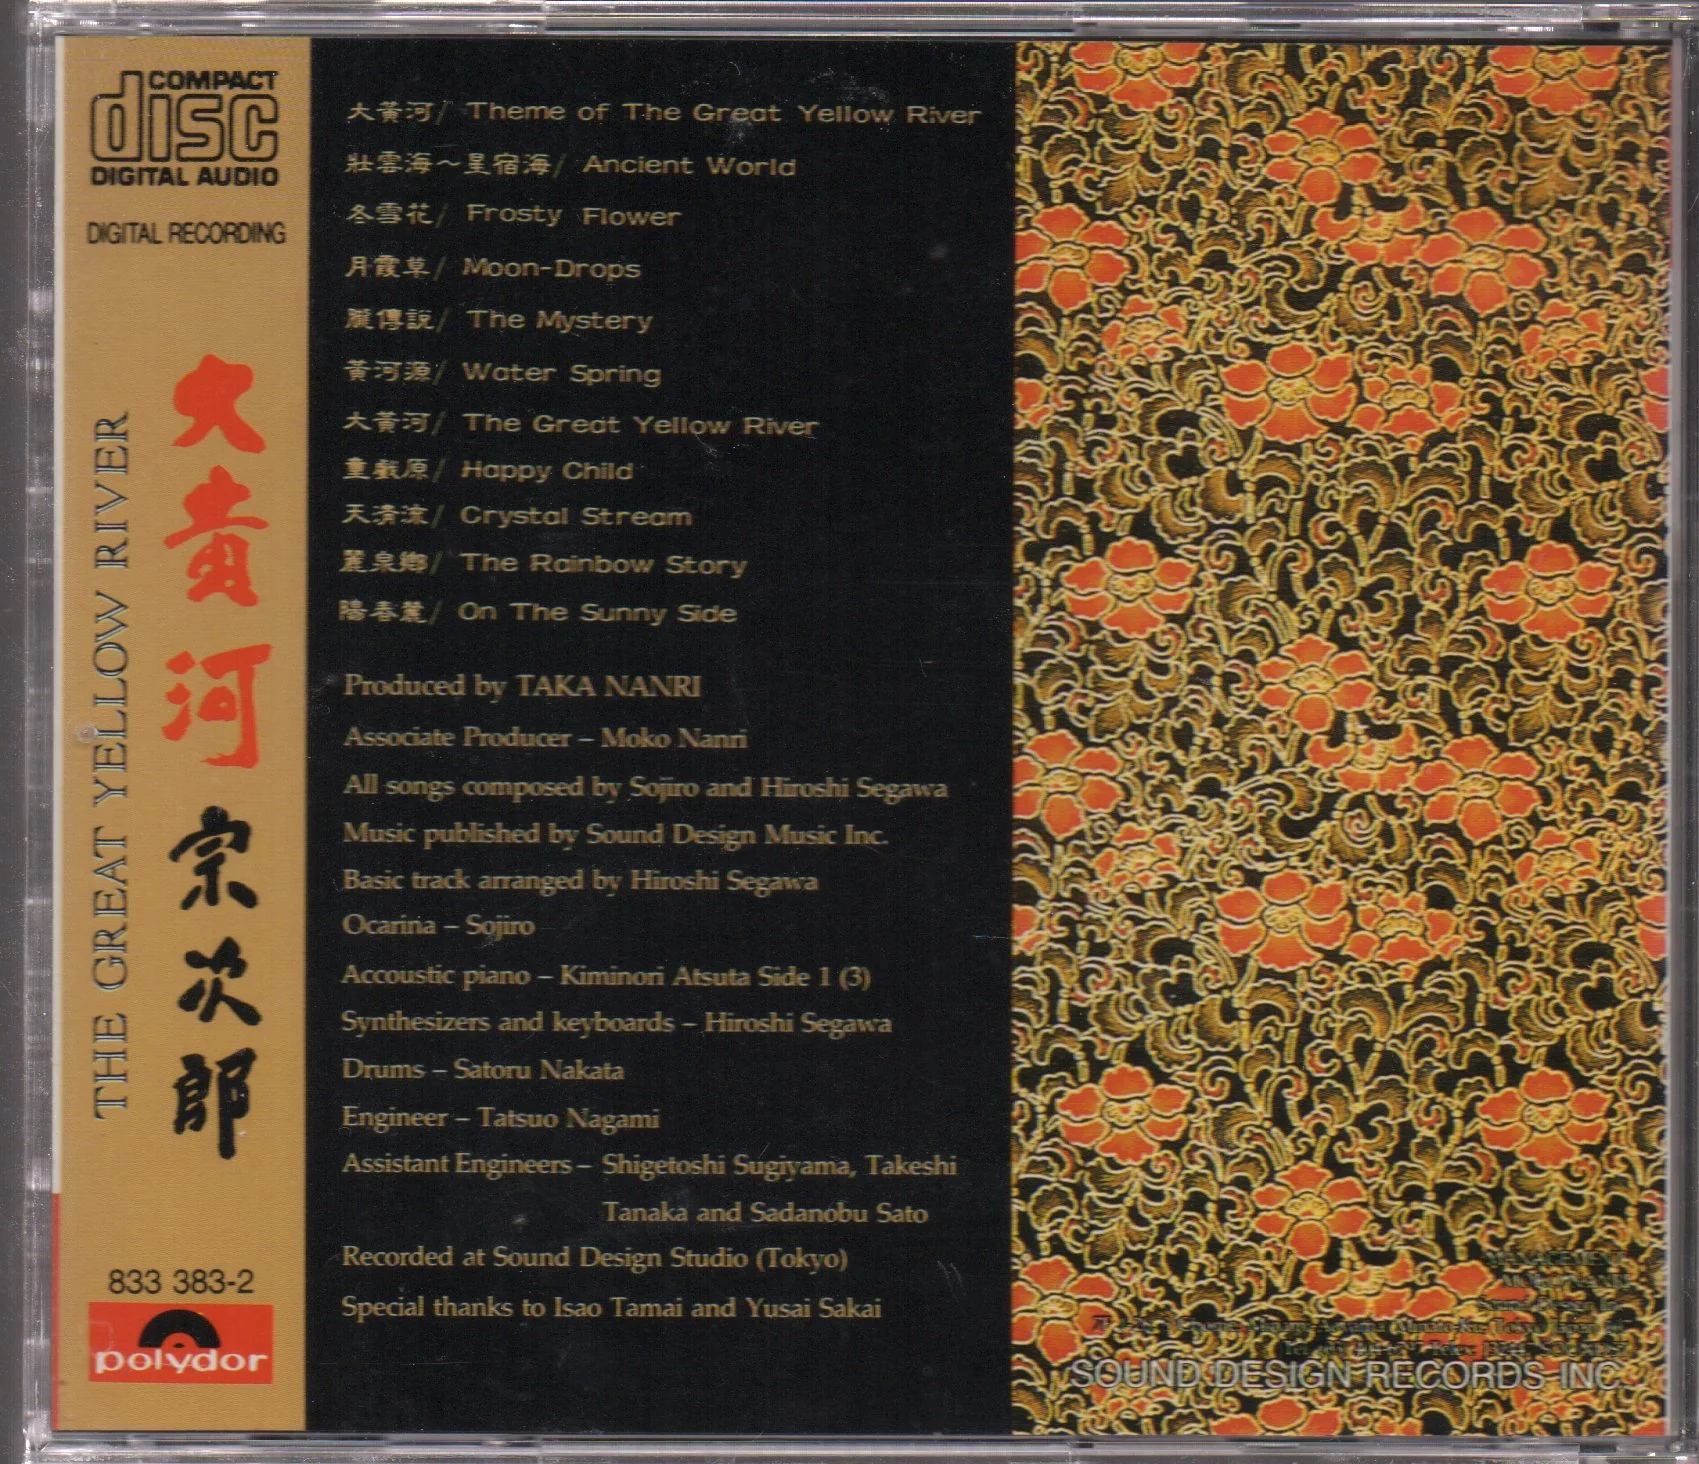 COMPACT
disc
DIGITAL AUDIO
DIGITAL RECORDING
大黃河
宗次郎
THE GREAT YELLOW RIVER
833 383-2
polydor
大黃河/ Theme of The Great Yellow River
壯雲海～星宿海/ Ancient World
冬雪花/ Frosty Flower
月霞草/ Moon-Drops
朧傳說/ The Mystery
黃河源/ Water Spring
大黃河/ The Great Yellow River
童戲原/ Happy Child
天清流/ Crystal Stream
麗泉鄉/ The Rainbow Story
陽春麓/ On The Sunny Side
Produced by TAKA NANRI
Associate Producer – Moko Nanri
All songs composed by Sojiro and Hiroshi Segawa
Music published by Sound Design Music Inc.
Basic track arranged by Hiroshi Segawa
Ocarina – Sojiro
Accoustic piano – Kiminori Atsuta Side 1 (3)
Synthesizers and keyboards – Hiroshi Segawa
Drums – Satoru Nakata
Engineer – Tatsuo Nagami
Assistant Engineers – Shigetoshi Sugiyama, Takeshi
Tanaka and Sadanobu Sato
Recorded at Sound Design Studio (Tokyo)
Special thanks to Isao Tamai and Yusai Sakai
MANAGEMENT
SOUND DESIGN RECORDS INC.